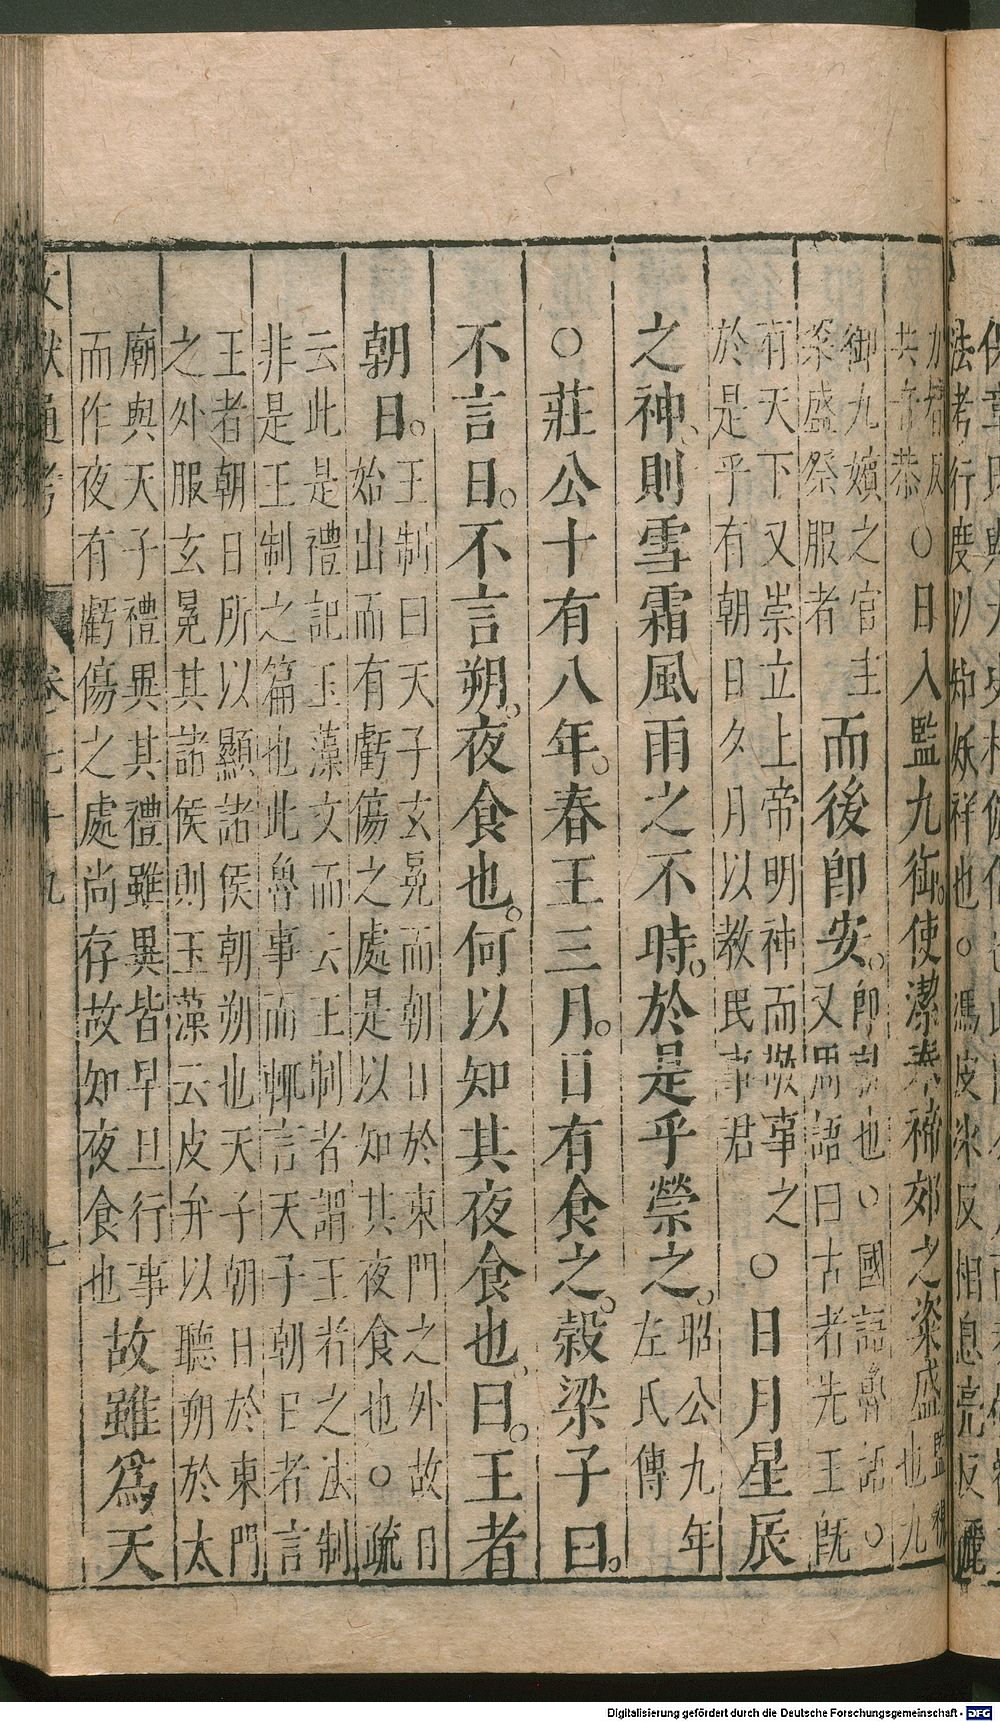 保章氏與
法考行度以知妖祥也○馮皮氷反相息亮反
共音恭
○日入監九御。使潔奉禘郊之粢盛監視也九
御九嬪之官主
粢盛祭服者
而後即安。即就也○國語魯語○
又周語曰古者先王旣
有天下又崇立上帝明神而敬事之
於是乎有朝日夕月以教民事君
○日月星辰
之神、則雪霜風雨之不時。於是乎禜之。昭公九年
左氏傳
○莊公十有八年。春王三月。日有食之。榖梁子曰。
不言日。不言朔。夜食也。何以知其夜食也。曰。王者
朝日。王制曰天子玄冕而朝日於東門之外故日
始出而有虧傷之處是以知其夜食也○疏
云此是禮記玉藻文而云王制者謂王者之法制
非是王制之篇也此魯事而輒言天子朝日者言
王者朝日所以顯諸侯朝朔也天子朝日於東門
之外服玄冕其諸侯則玉藻云皮弁以聽朔於太
廟與天子禮異其禮雖異皆早旦行事
而作夜有虧傷之處尚存故知夜食也
故雖爲天
文獻通考 卷七十九 七
Digitalisierung gefördert durch die Deutsche Forschungsgemeinschaft - DFG